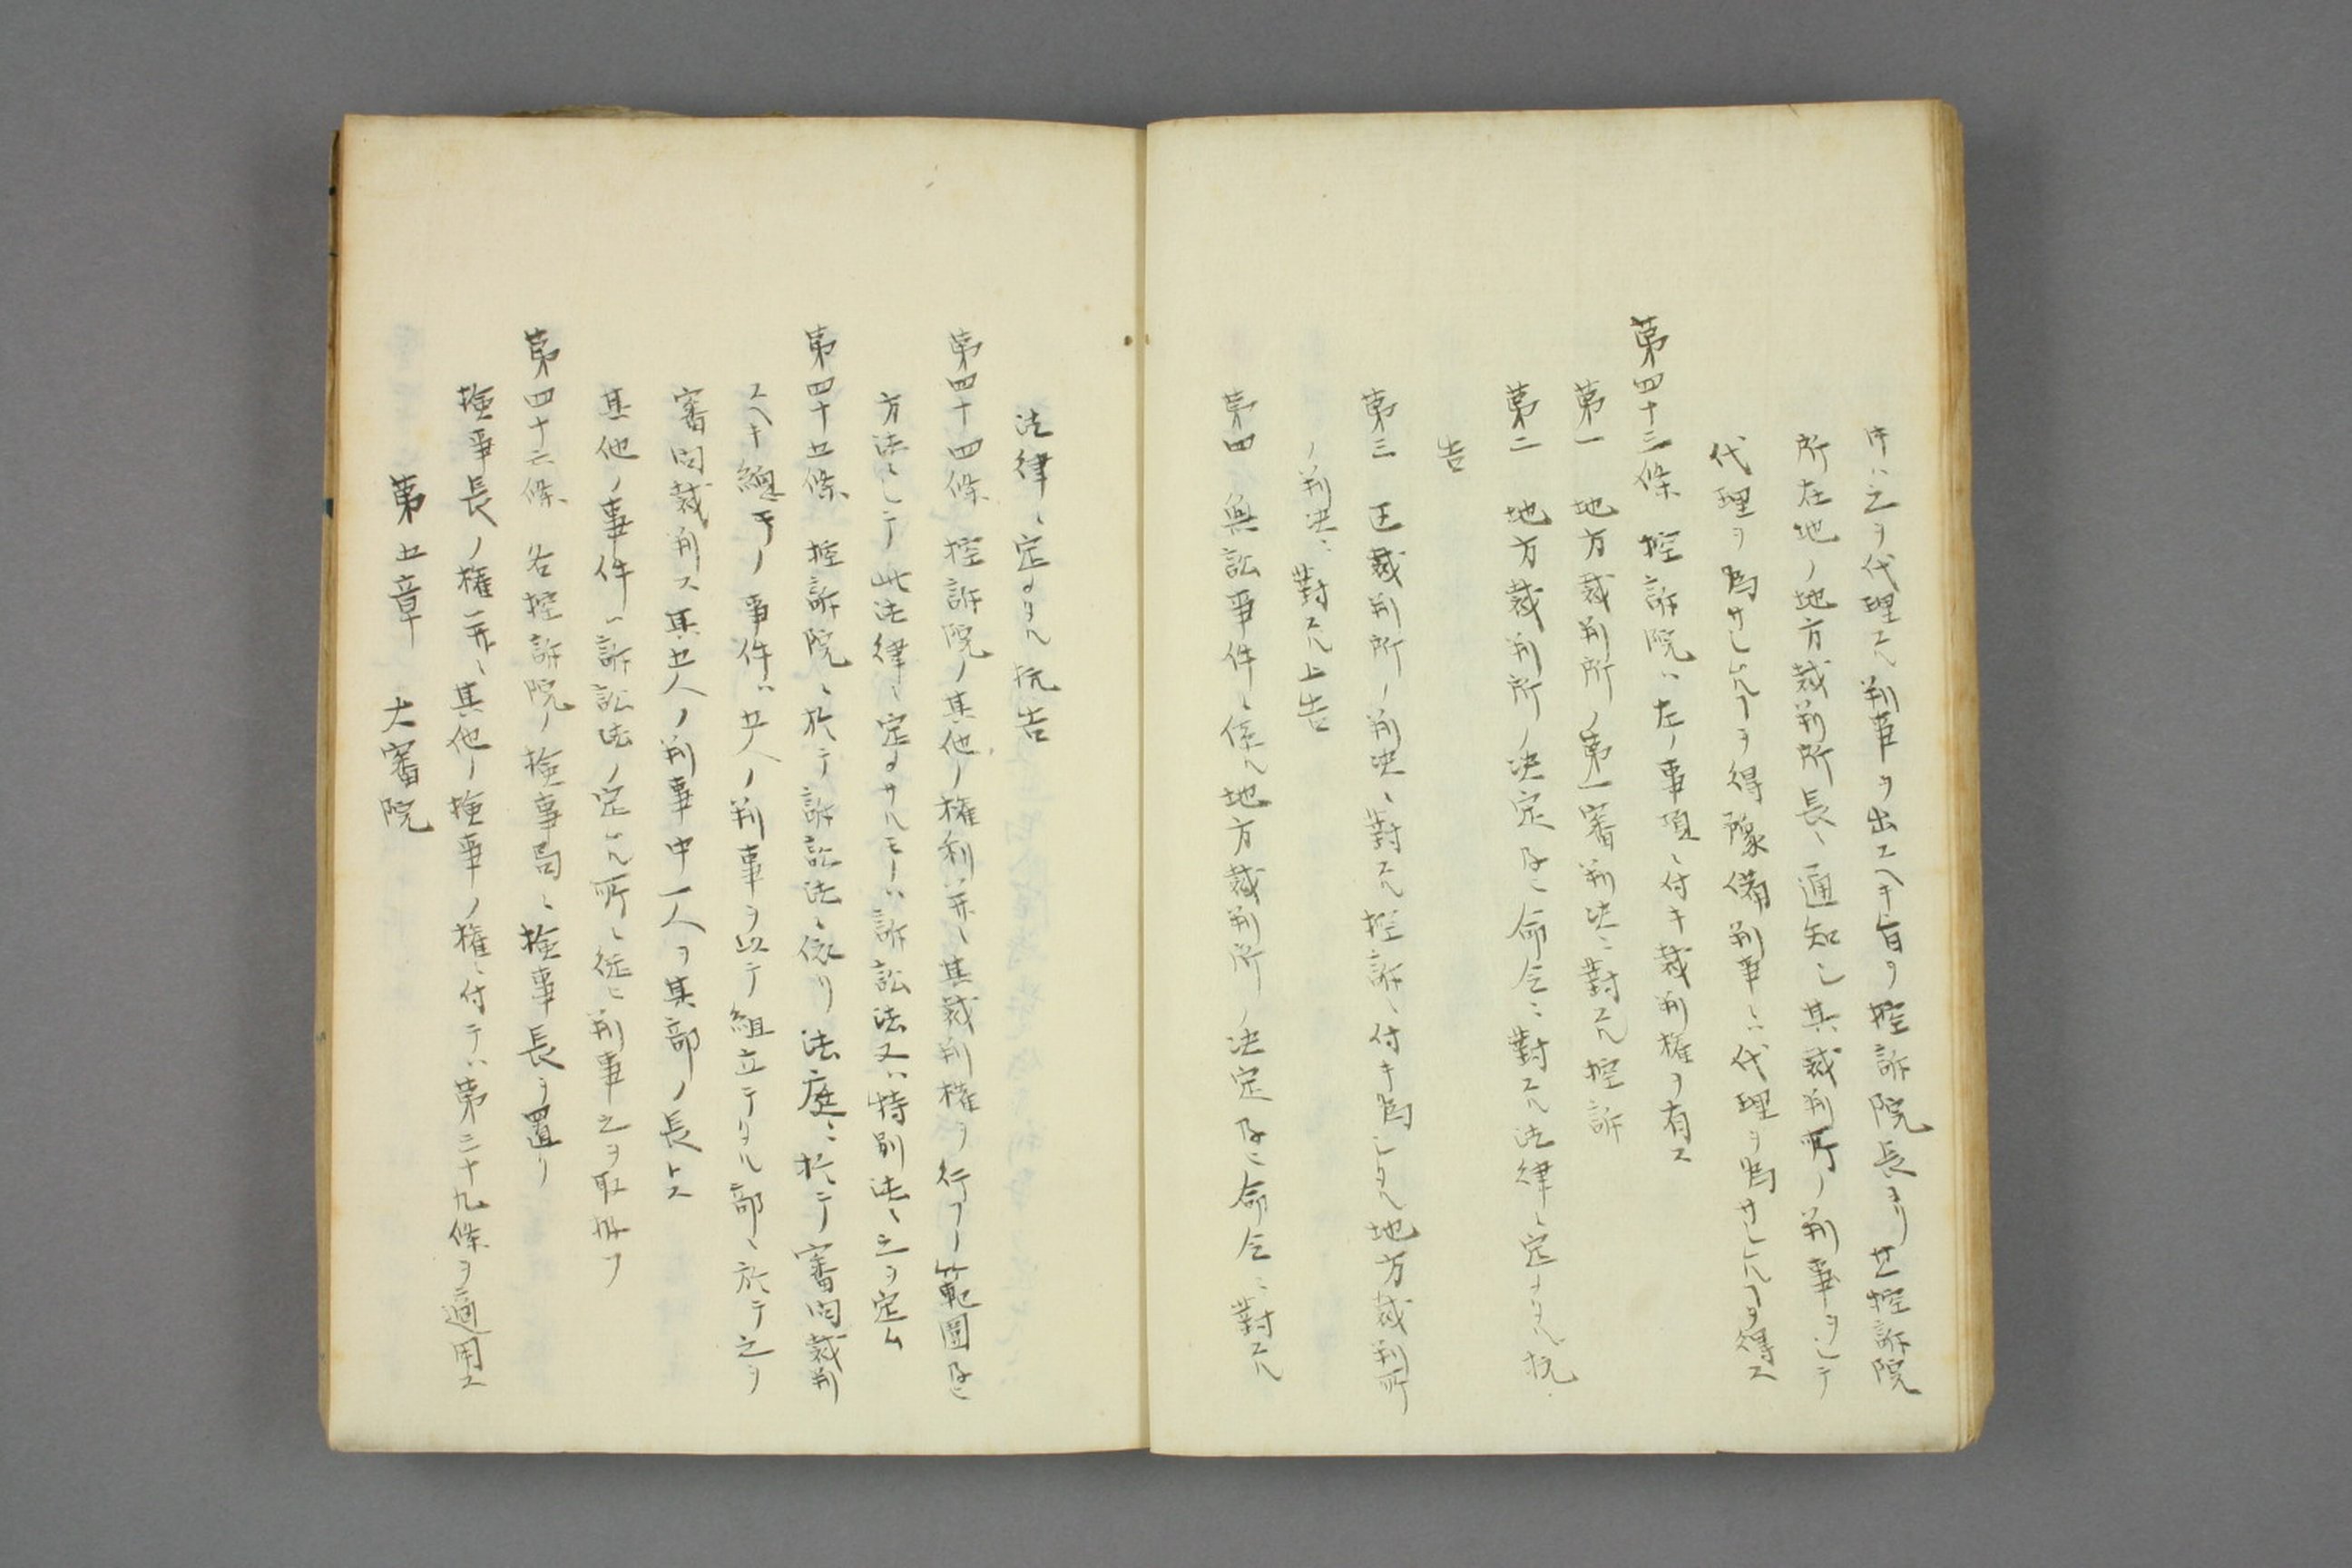 件ハ之ヲ代理スル判事ヲ出スヘキ旨ヲ控訴院長ヨリ其控訴院
所在地ノ地方裁判所長ニ通知シ其裁判所ノ判事ヲシテ
代理ヲ為サシムルヿヲ得豫備判事ハ代理ヲ為サシムルヿヲ得ス
第四十三條 控訴院ハ左ノ事項ニ付キ裁判権ヲ有ス
第一 地方裁判所ノ第一審判決ニ對スル控訴
第二 地方裁判所ノ決定及ヒ命令ニ對スル法律ニ定メタル抗
告
第三 区裁判所ノ判決ニ對スル控訴ニ付キ為シタル地方裁判所
ノ判決ニ對スル上告
第四 與訟事件ニ係ル地方裁判所ノ決定及ヒ命令ニ對スル
法律ニ定メタル抗告
第四十四條 控訴院ノ其他ノ権利並ニ其裁判権ヲ行フノ範囲及ヒ
方法ニシテ此法律ニ定メサルモノハ訴訟法又ハ特別法ニ之ヲ定ム
第四十五條 控訴院ニ於テ訴訟法ニ依リ法庭ニ於テ審問裁判
スヘキ總テノ事件ハ五人ノ判事ヲ以テ組立テタル部ニ於テ之ヲ
審問裁判ス其五人ノ判事中一人ヲ其部ノ長トス
其他ノ事件ハ訴訟法ノ定ムル所ニ従ヒ判事之ヲ取扱フ
第四十六條 各控訴院ノ検事局ニ検事長ヲ置ク
検事長ノ権並ニ其他ノ検事ノ権ニ付テハ第三十九條ヲ適用ス
第五章 大審院